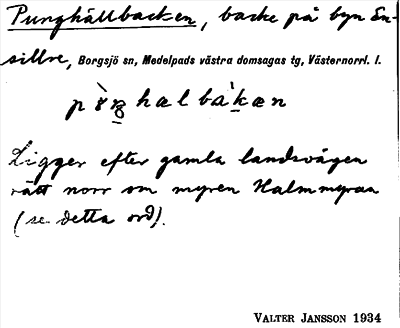 Punghällbacken, backe på byn En-
sillre, Borgsjö sn, Medelpads västra domsagas tg, Västernorrl. l.
hal
Ligger efter gamla landsvägen
rätt norr om myren Halmmyran
(se detta ord).
VALTER JANSSON 1934